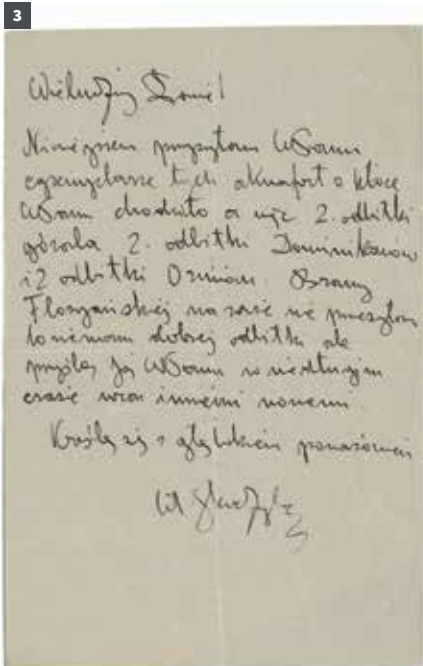 3
Wielmożny Panie!
Niniejszem przesyłam WPanu
egzemplarze tych akwafort o które
WPanu chodziło a więc 2. odbitki
górala 2. odbitki Dominikanów
i 2 odbitki Oźmian. Bramy
Floryańskiej na razie nie przesyłam
bo niemam dobrej odbitki ale
prześlę ją WPanu w niedługim
czasie wraz innemi nowemi.
Kreślę się z głębokiem poważaniem